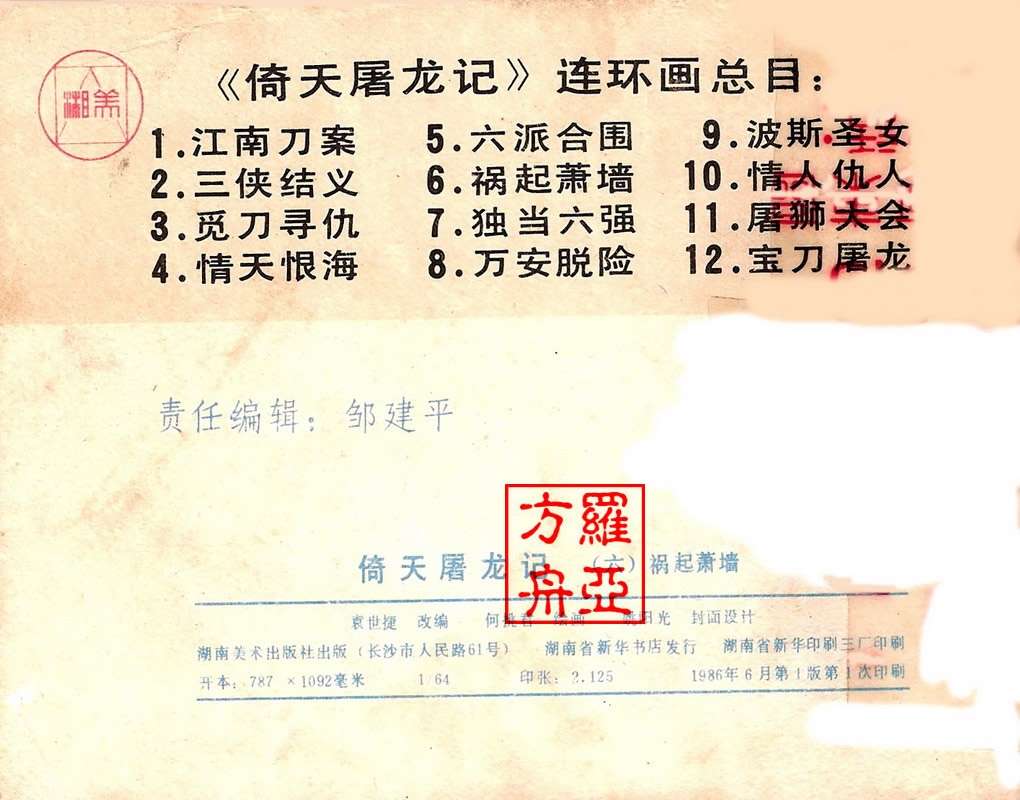 湘美
《倚天屠龙记》连环画总目：
1.江南刀案 5.六派合围 9.波斯圣女
2.三侠结义 6.祸起萧墙 10.情人仇人
3.觅刀寻仇 7.独当六强 11.屠狮大会
4.情天恨海 8.万安脱险 12.宝刀屠龙
责任编辑：邹建平
羅亞方舟
倚天屠龙记 （六）祸起萧墙
袁世捷 改编 何 君 绘画 阳光 封面设计
湖南美术出版社出版（长沙市人民路61号） 湖南省新华书店发行 湖南省新华印刷三厂印刷
开本：787 ×1092毫米 1 64 印张：2.125 1986年6月第1版第1次印刷